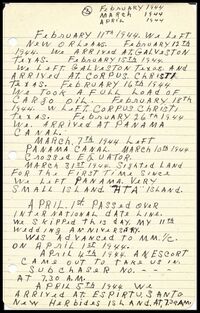 ② February 1944
March 1944
April 1944
February 11th 1944. We Left
New Orleans. February 12th
1944. We Arrived At Galveston
Texas. February 15th 1944.
We Left Galveston Texas. And
Arrived At Corpus Christi
Texas. February 16th 1944
We Took A Full Load of
Cargo Oil. February 18th
1944. We Left Corpus Christi
Texas. February 26th 1944
We Arrived At Panama
Canal.
March. 7th 1944 Left
Panama Canal. March 10th 1944
Crossed Equator.
March 31st 1944 Sighted Land
For The First Time Since
We Left Panama. Very
Small Island "HTA" Island.
April. 1st Passed over
International Date Line.
We Skipped This day. My 11th
Wedding Anniversary.
Was Advanced To MM.1/c.
On April 1st 1944.
April 4th 1944. An Escort
Came Out To Take Us In.
Sub Chaser No. - - - -
At 7.30 AM.
April 5th 1944 We
Arrived At Espirtu Santo
New Herbides Island. At 7.30 AM.